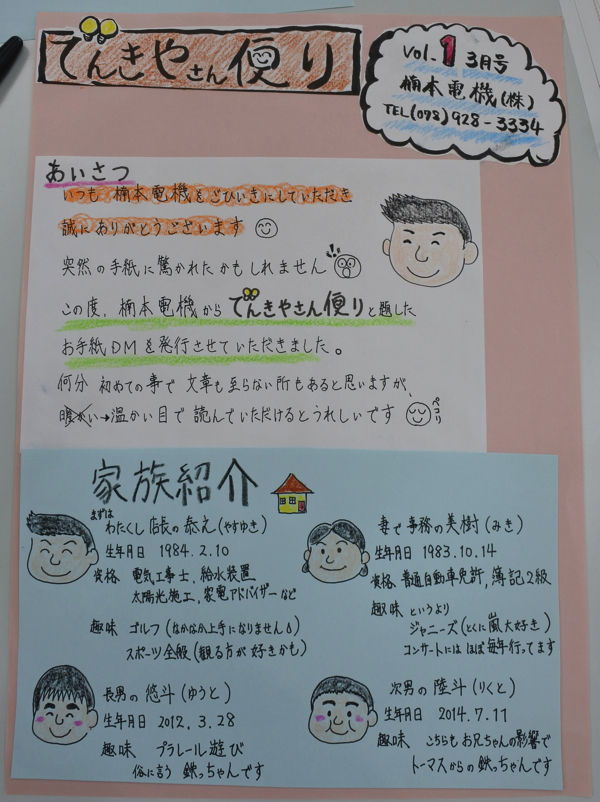 でんきやさん便り
Vol.1 3月号
楠本電機(株)
TEL(078)928-3334
あいさつ
いつも 楠本電機をごひいきにしていただき
誠にありがとうございます
突然の手紙に驚かれたかもしれません
この度、楠本電機からでんきやさん便りと題した
お手紙DMを発行させていただきました。
何分 初めての事で 文章も至らない所もあると思いますが、
暖かい→温かい目で 読んでいただけるとうれしいです
ペコリ
家族紹介
まずは
わたくし 店長の 泰之(やすゆき)
生年月日 1984.2.10
資格 電気工事士, 給水装置
太陽光施工, 家電アドバイザーなど
趣味 ゴルフ(なかなか上手になりません)
スポーツ全般(観る方が好きかも)
妻で事務の美樹(みき)
生年月日 1983.10.14
資格 普通自動車免許, 簿記2級
趣味 というより
ジャニーズ(とくに嵐大好き)
コンサートには ほぼ毎年行ってます
長男の 悠斗(ゆうと)
生年月日 2012.3.28
趣味 プラレール遊び
俗に言う 鉄っちゃんです
次男の 陸斗(りくと)
生年月日 2014.7.11
趣味 こちらもお兄ちゃんの影響で
トーマスからの鉄っちゃんです